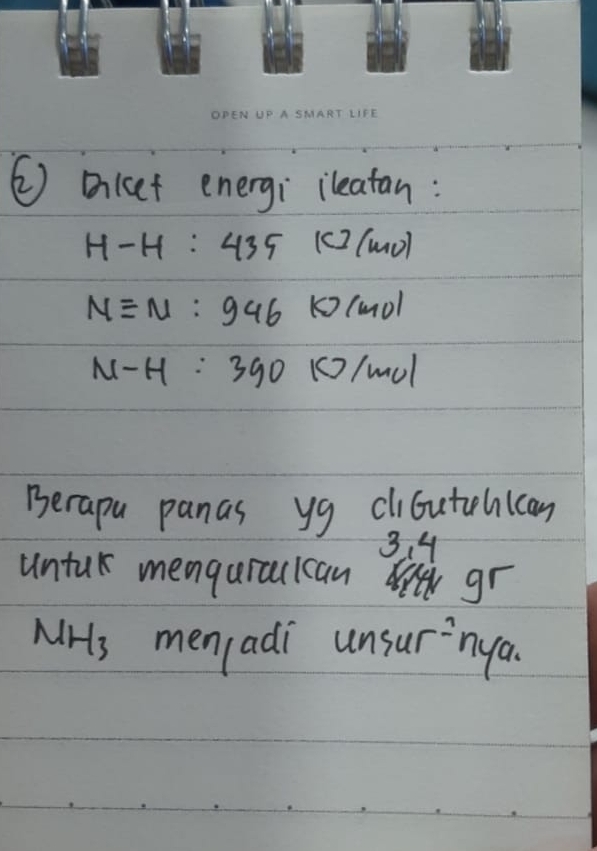 OPEN UP A SMART LIFE
② Diket energi ikatan :
H-H : 435 KJ/mol
N≡N : 946 KJ/mol
N-H : 390 KJ/mol
Berapa panas yg dibutuhkan
3,4
untuk menguraikan gr
NH₃ menjadi unsur²nya.